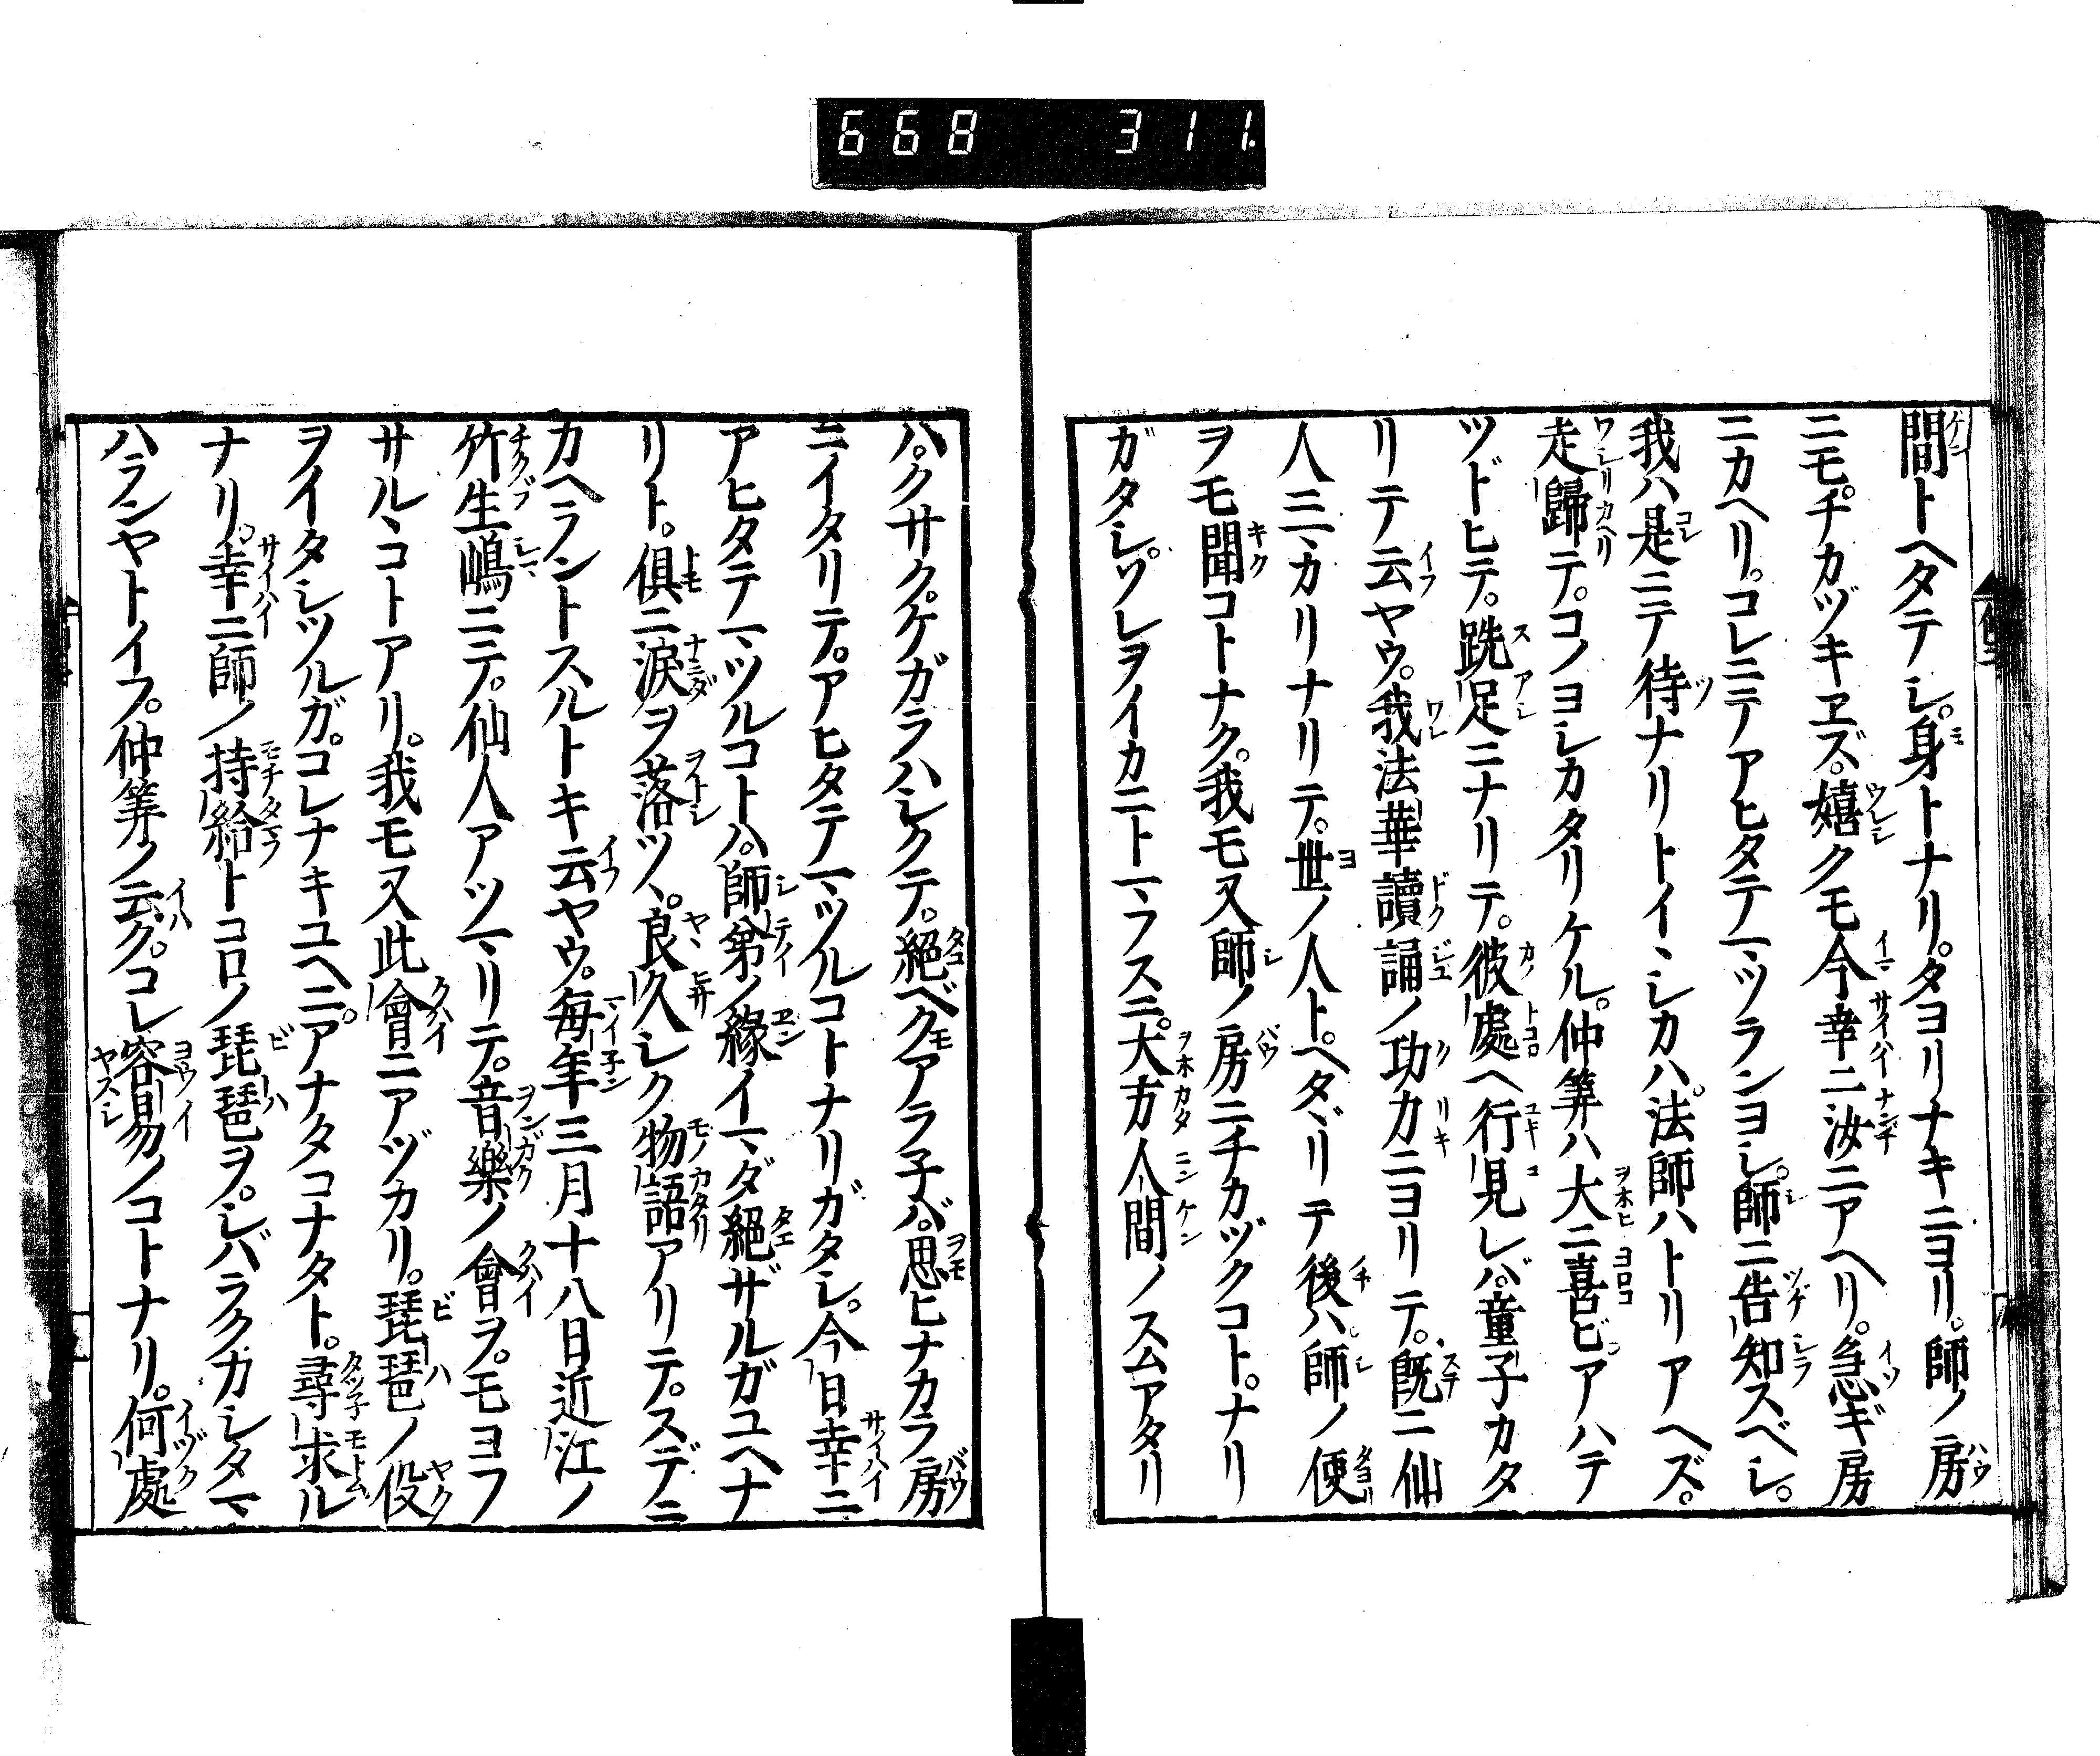 668 311.
間トヘタテシ。身トナリ。タヨリナキニヨリ。師ノ房
ニモチカヅキヱズ。嬉クモ今幸ニ汝ニアヘリ。急ギ房
ニカヘリ。コレニテアヒタテマツランヨシ。師ニ告知スベシ。
我ハ是ニテ待ナリトイヽシカハ。法師ハトリアヘズ。
走歸テ。コノヨシカタリケル。仲筭ハ大ニ喜ビアハテ
ツドヒテ。跣足ニナリテ。彼處ヘ行見レバ。童子カタ
リテ云ヤウ。我法華讀誦ノ功カニヨリテ。既ニ仙
人ニヽカリナリテ。世ノ人ト。ヘダヽリテ後ハ師ノ便
ヲモ聞コトナク。我モ又師ノ房ニチカヅクコト。ナリ
ガタシ。ソレヲイカニトマフスニ。大方人間ノスムアタリ
ハ。クサク。ケガラハシクテ。絕ベクモアラ子バ。思ヒナカラ房
ニイタリテ。アヒタテマツルコトナリガタシ。今日幸ニ
アヒタテマツルコトハ。師弟ノ緣イマダ絕ザルガユヘナ
リト。俱ニ淚ヲ落ツヽ。良久シク物語アリテ。スデニ
カヘラントスルトキ云ヤウ。每年三月十八日近江ノ
竹生嶋ニテ。仙人アツマリテ。音樂ノ會ヲ。モヨフ
サルヽコトアリ。我モ又此會ニアヅカリ。琵琶ノ役
ヲイタシツルガ。コレナキユヘニ。アナタコナタト。尋求ル
ナリ。幸ニ師ノ持給トコロノ琵琶ヲ。シバラクカシタマ
ハランヤトイフ。仲筭ノ云ク。コレ容易ノコトナリ。何處